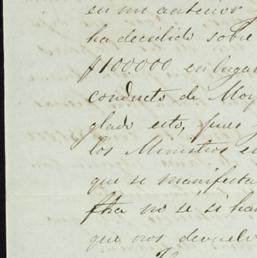 en mi anterior
ha decidido sobre
$100000 en lugar
conducto de Moy
glado esto, pues
los Ministros e
que se manifiesta
fha no se si ha
que nos devuelv